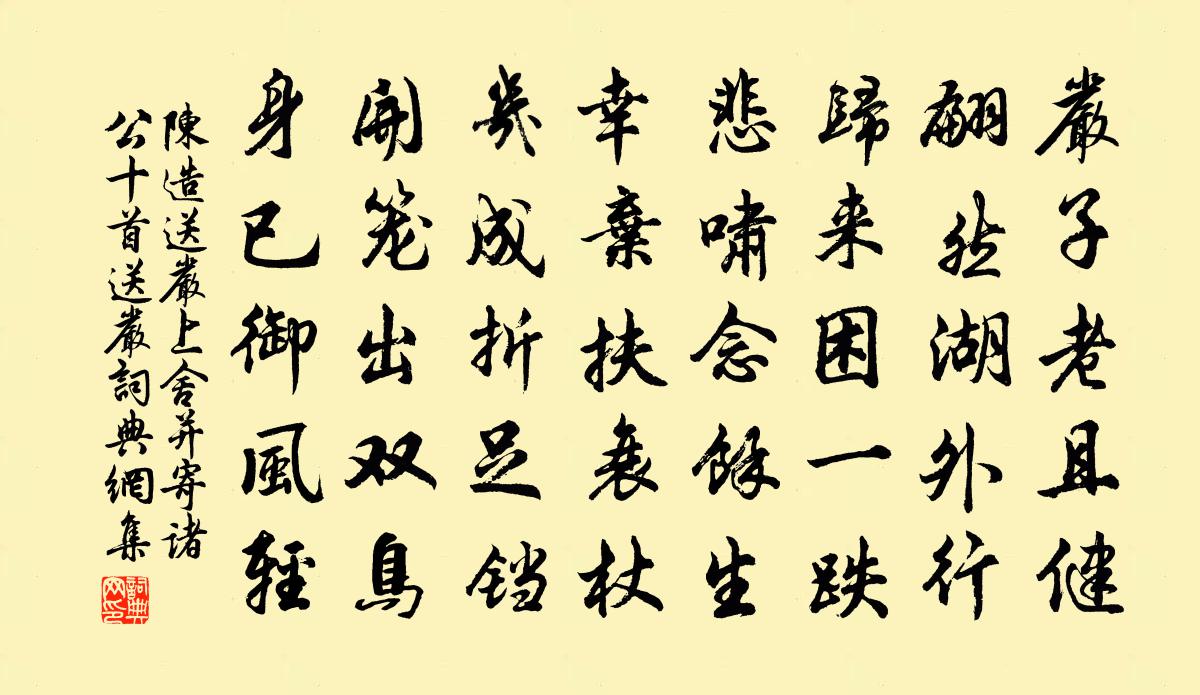 嚴子老且健
翩然湖外行
歸来困一跌
悲啸念餘生
幸棄扶衰杖
幾成折足铛
開笼出双鳥
身已御風輕
陳造送嚴上舍并寄諸
公十首送嚴詞典網集
詞典
网印